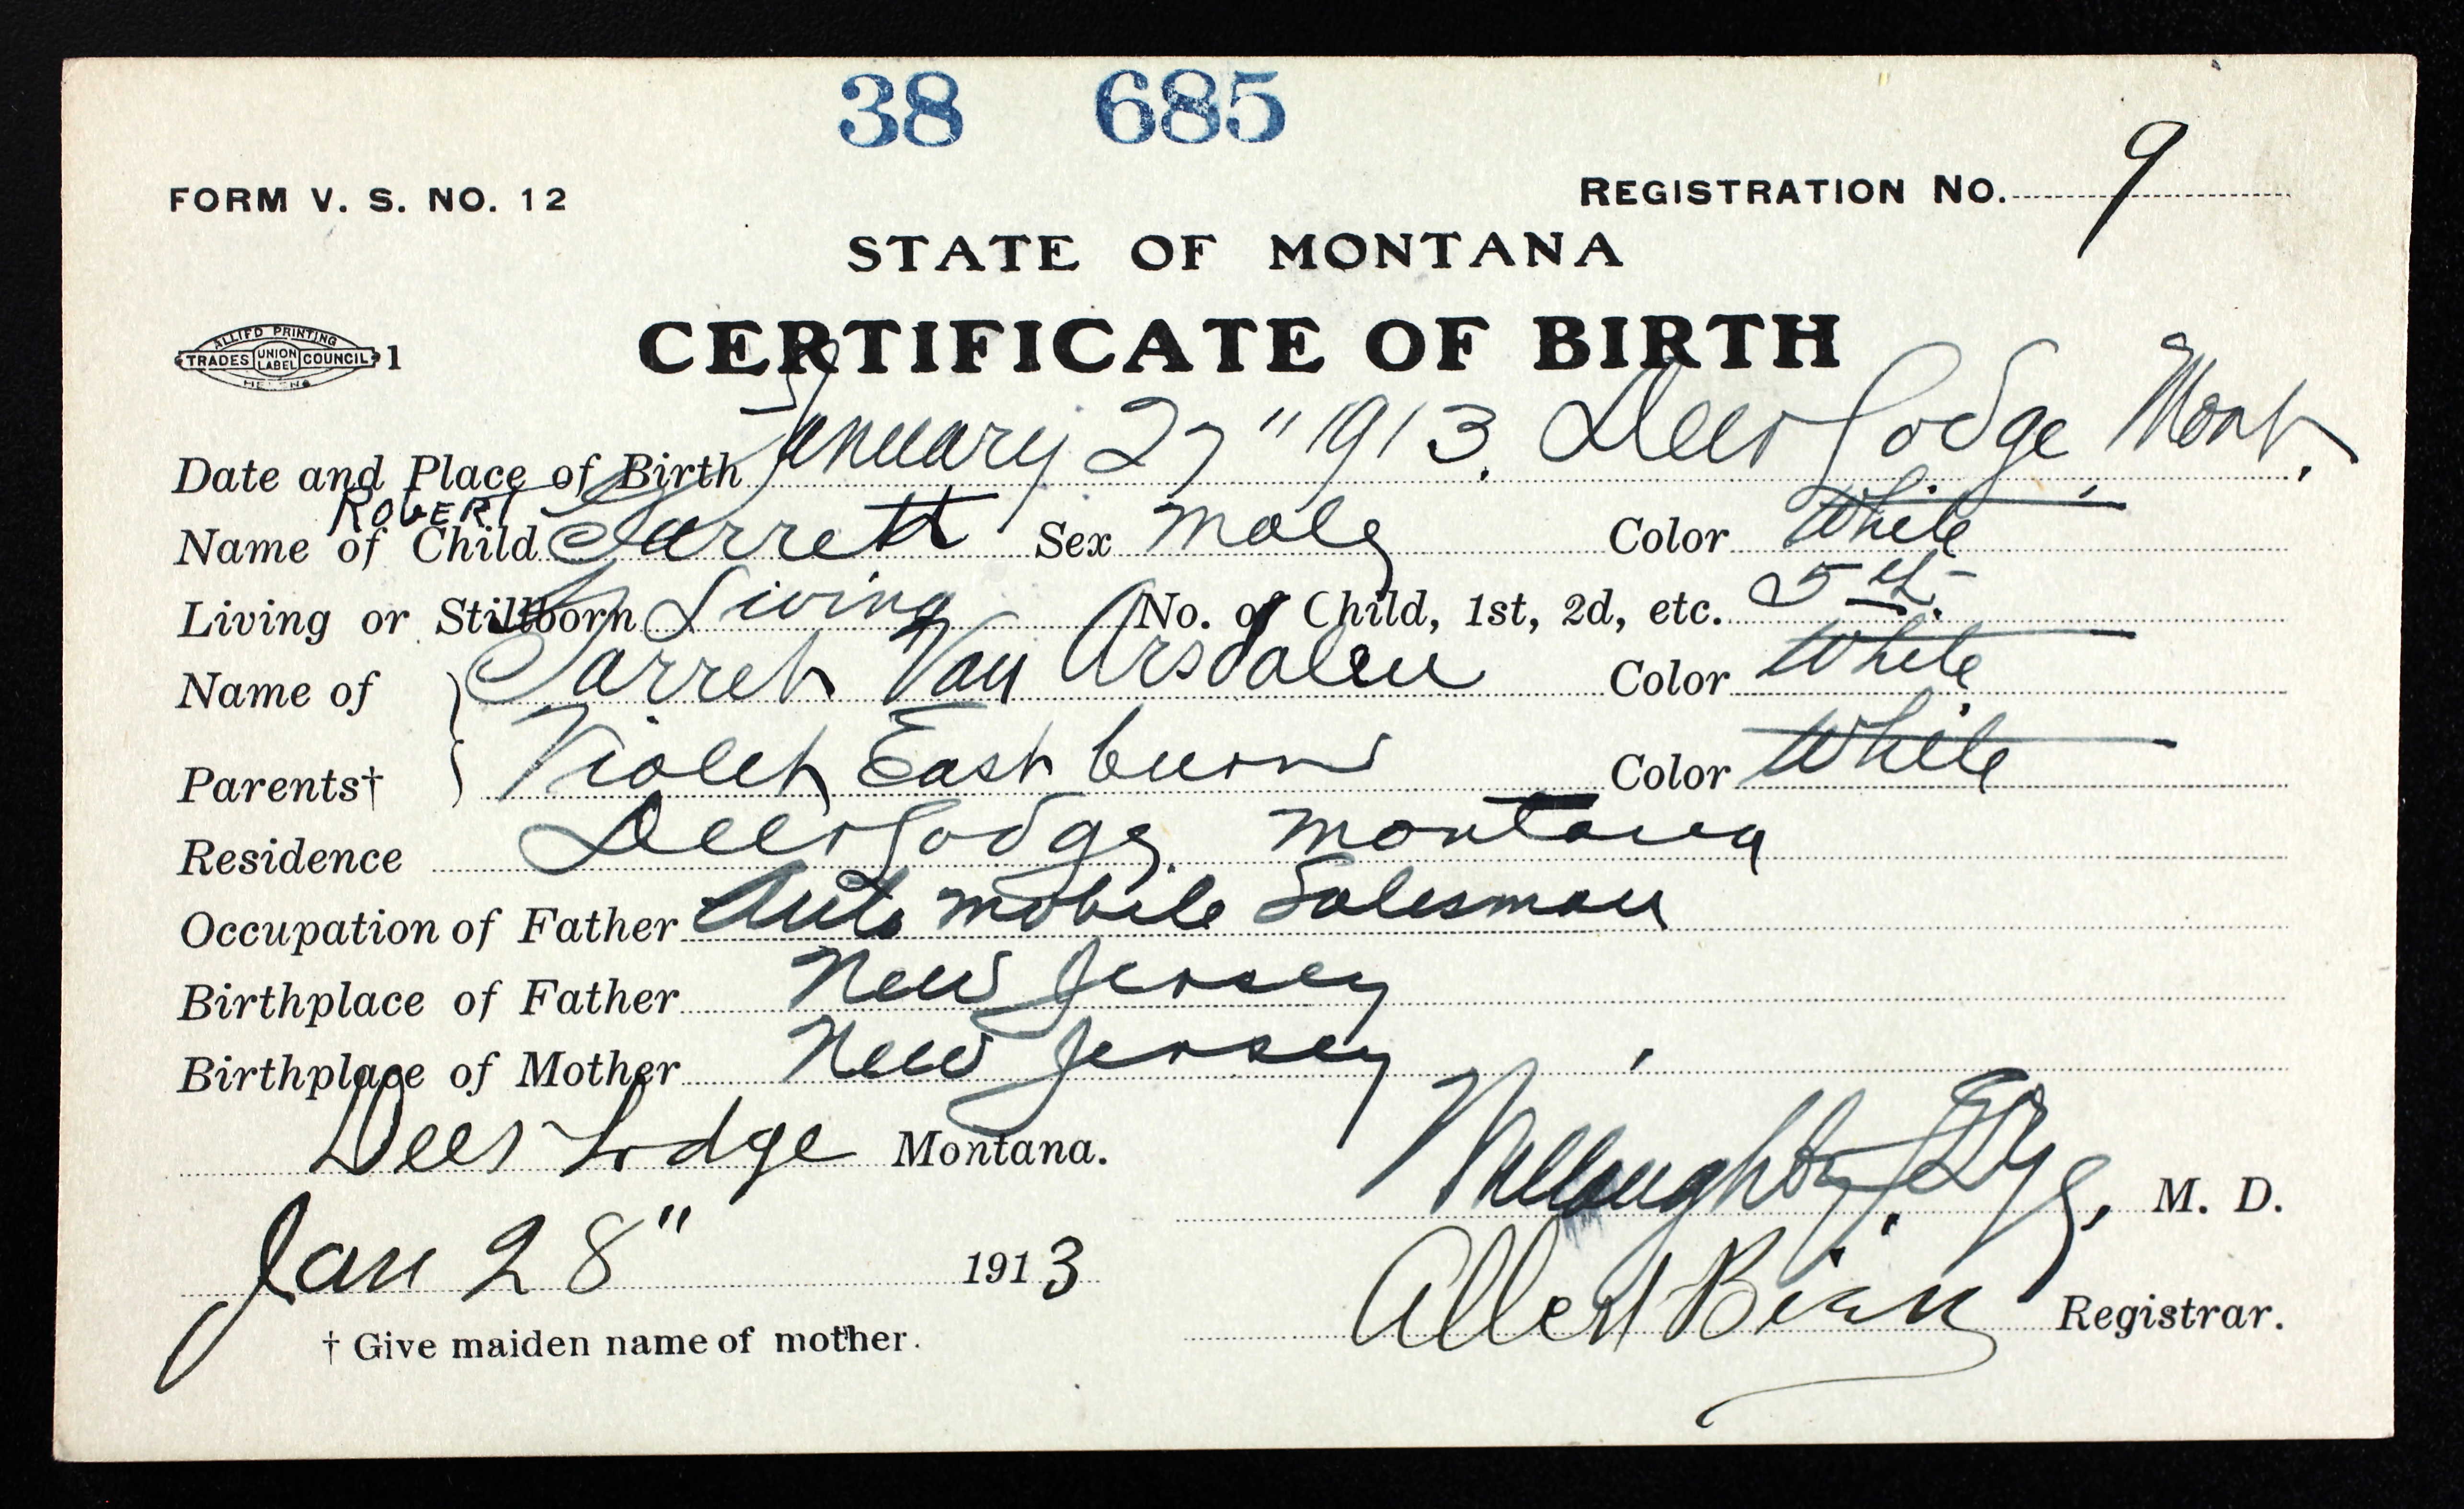 38 685
FORM V. S. NO. 12
REGISTRATION NO. 9
STATE OF MONTANA
ALLIED PRINTING
TRADES UNION LABEL COUNCIL 1
HELENA
CERTIFICATE OF BIRTH
Date and Place of Birth January 27" 1913. Deer Lodge, Mont.
ROBERT
Name of Child Garrett Sex Male Color White
Living or Stillborn Living No. of Child, 1st, 2d, etc. 5th
Name of Garret Van Arsdalen Color White
Parents† Violet Eastburn Color White
Residence Deer Lodge, Montana
Occupation of Father Automobile Salesman
Birthplace of Father New Jersey
Birthplace of Mother New Jersey
Deer Lodge Montana.
Willoughby, M. D.
Jan 28" 1913
Registrar.
† Give maiden name of mother.